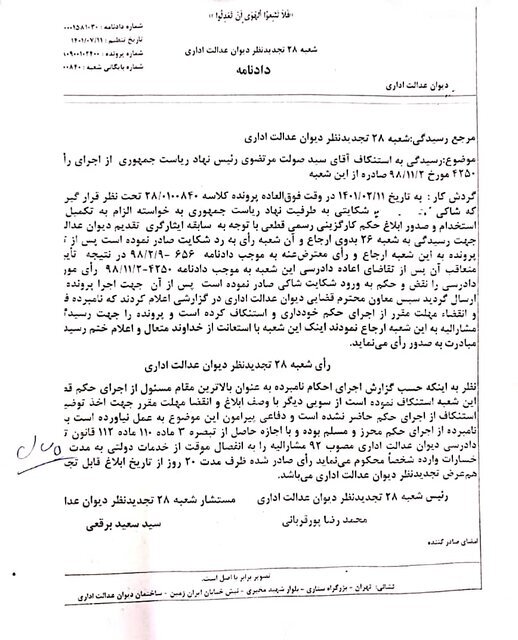 «فَلا تَتَّبِعُوا الْهَوى أَنْ تَعْدِلُوا»
شماره دادنامه :
تاریخ تنظیم : ۱۴۰۱/۰۷/۱۱
شماره پرونده :
شماره بایگانی شعبه :
شعبه ۲۸ تجدیدنظر دیوان عدالت اداری
دادنامه
دیوان عدالت اداری
مرجع رسیدگی:شعبه ۲۸ تجدیدنظر دیوان عدالت اداری
موضوع:رسیدگی به استنکاف آقای سید صولت مرتضوی رئیس نهاد ریاست جمهوری از اجرای رأ
۴۲۵۰ مورخ ۹۸/۱۱/۲ صادره از این شعبه
گردش کار : به تاریخ ۱۴۰۱/۰۲/۱۱ در وقت فوق‌العاده پرونده کلاسه ۲۸/۰۱۰۰۸۴۰ تحت نظر قرار گیر
که شاکی شکایتی به طرفیت نهاد ریاست جمهوری به خواسته الزام به تکمیل
استخدام و صدور ابلاغ حکم کارگزینی رسمی قطعی با توجه به سابقه ایثارگری تقدیم دیوان عدال
جهت رسیدگی به شعبه ۲۶ بدوی ارجاع و آن شعبه رأی به رد شکایت صادر نموده است پس از ت
پرونده به این شعبه ارجاع و رأی معترض‌عنه به موجب دادنامه ۶۵۶ -۹۸/۲/۹ در نتیجه تأیی
متعاقب آن پس از تقاضای اعاده دادرسی این شعبه به موجب دادنامه ۴۲۵۰-۹۸/۱۱/۲ رأی مور
دادرسی را نقض و حکم به ورود شکایت شاکی صادر نموده است پس از آن جهت اجرا پرونده
ارسال گردید سپس معاون محترم قضایی دیوان عدالت اداری در گزارشی اعلام کردند که نامبرده ف
و انقضاء مهلت مقرر از اجرای حکم خودداری و استنکاف کرده است و پرونده را جهت رسیدگ
مشارالیه به این شعبه ارجاع نمودند اینک این شعبه با استعانت از خداوند متعال و اعلام ختم رسید
مبادرت به صدور رأی می‌نماید.
رأی شعبه ۲۸ تجدیدنظر دیوان عدالت اداری
نظر به اینکه حسب گزارش اجرای احکام نامبرده به عنوان بالاترین مقام مسئول از اجرای حکم قط
این شعبه استنکاف نموده است از سویی دیگر با وصف ابلاغ و انقضا مهلت مقرر جهت اخذ توضیـ
استنکاف از اجرای حکم حاضر نشده است و دفاعی پیرامون این موضوع به عمل نیاورده است
نامبرده از اجرای حکم محرز و مسلم بوده و با اجازه حاصل از تبصره ۳ ماده ۱۱۰ ماده ۱۱۲ قانون ت
دادرسی دیوان عدالت اداری مصوب ۹۲ مشارالیه را به انفصال موقت از خدمات دولتی به مدت
خسارات وارده شخصاً محکوم می‌نماید رأی صادر شده ظرف مدت ۲۰ روز از تاریخ ابلاغ قابل تجـ
هم‌عرض تجدیدنظر دیوان عدالت اداری می‌باشد.
رئیس شعبه ۲۸ تجدیدنظر دیوان عدالت اداری مستشار شعبه ۲۸ تجدیدنظر دیوان عدا
محمد رضا پورقربانی سید سعید برقعی
امضای صادر کننده
تصویر برابر با اصل است.
نشانی: تهران - بزرگراه ستاری - بلوار شهید مخبری - نبش خیابان ایران زمین - ساختمان دیوان عدالت اداری